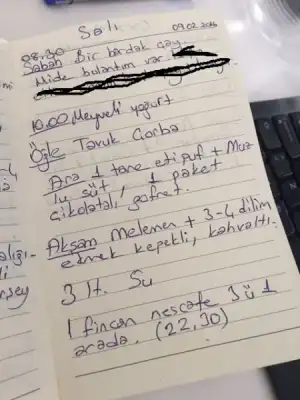 Salı 09.02.2016
08.30
Sabah Bir bardak çay
Mide bulantım var
10.00 Meyveli yoğurt
Öğle Tavuk Çorba
Ara 1 tane etipuf + Muz
lu süt, 1 paket
çikolatalı gofret.
Akşam Melemen + 3-4 dilim
ekmek kepekli, kahvaltı.
3 lt. Su
1 fincan nescafe 3 ü 1
arada. (22,30)